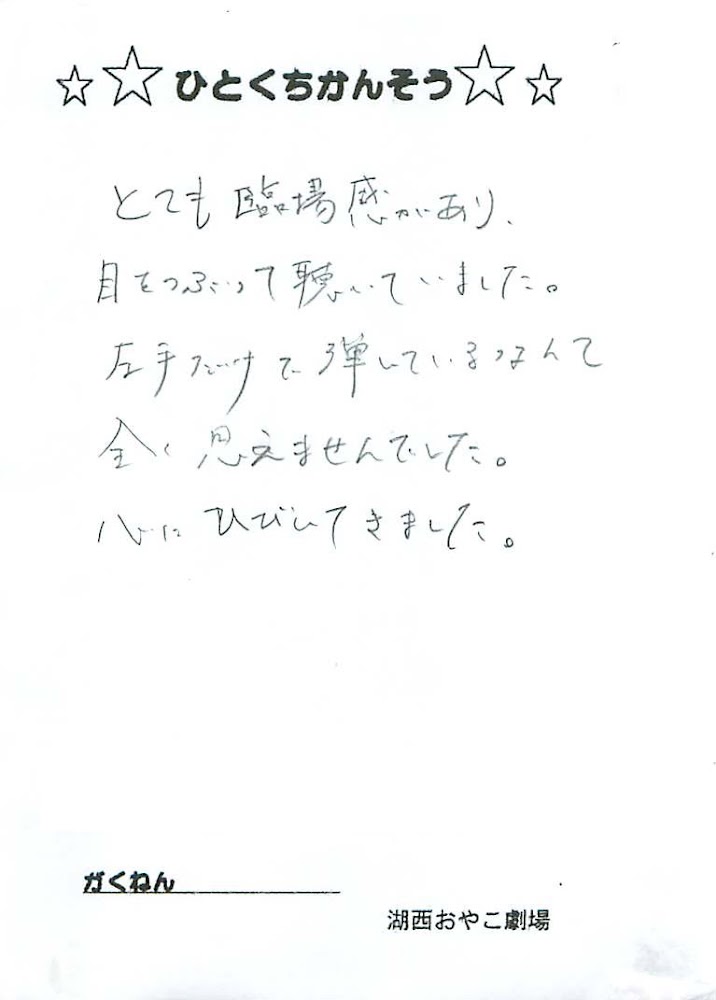 ☆☆ひとくちかんそう☆☆
とても臨場感があり、
目をつぶって聴いていました。
左手だけで弾いているなんて
全く思えませんでした。
心にひびいてきました。
がくねん
湖西おやこ劇場